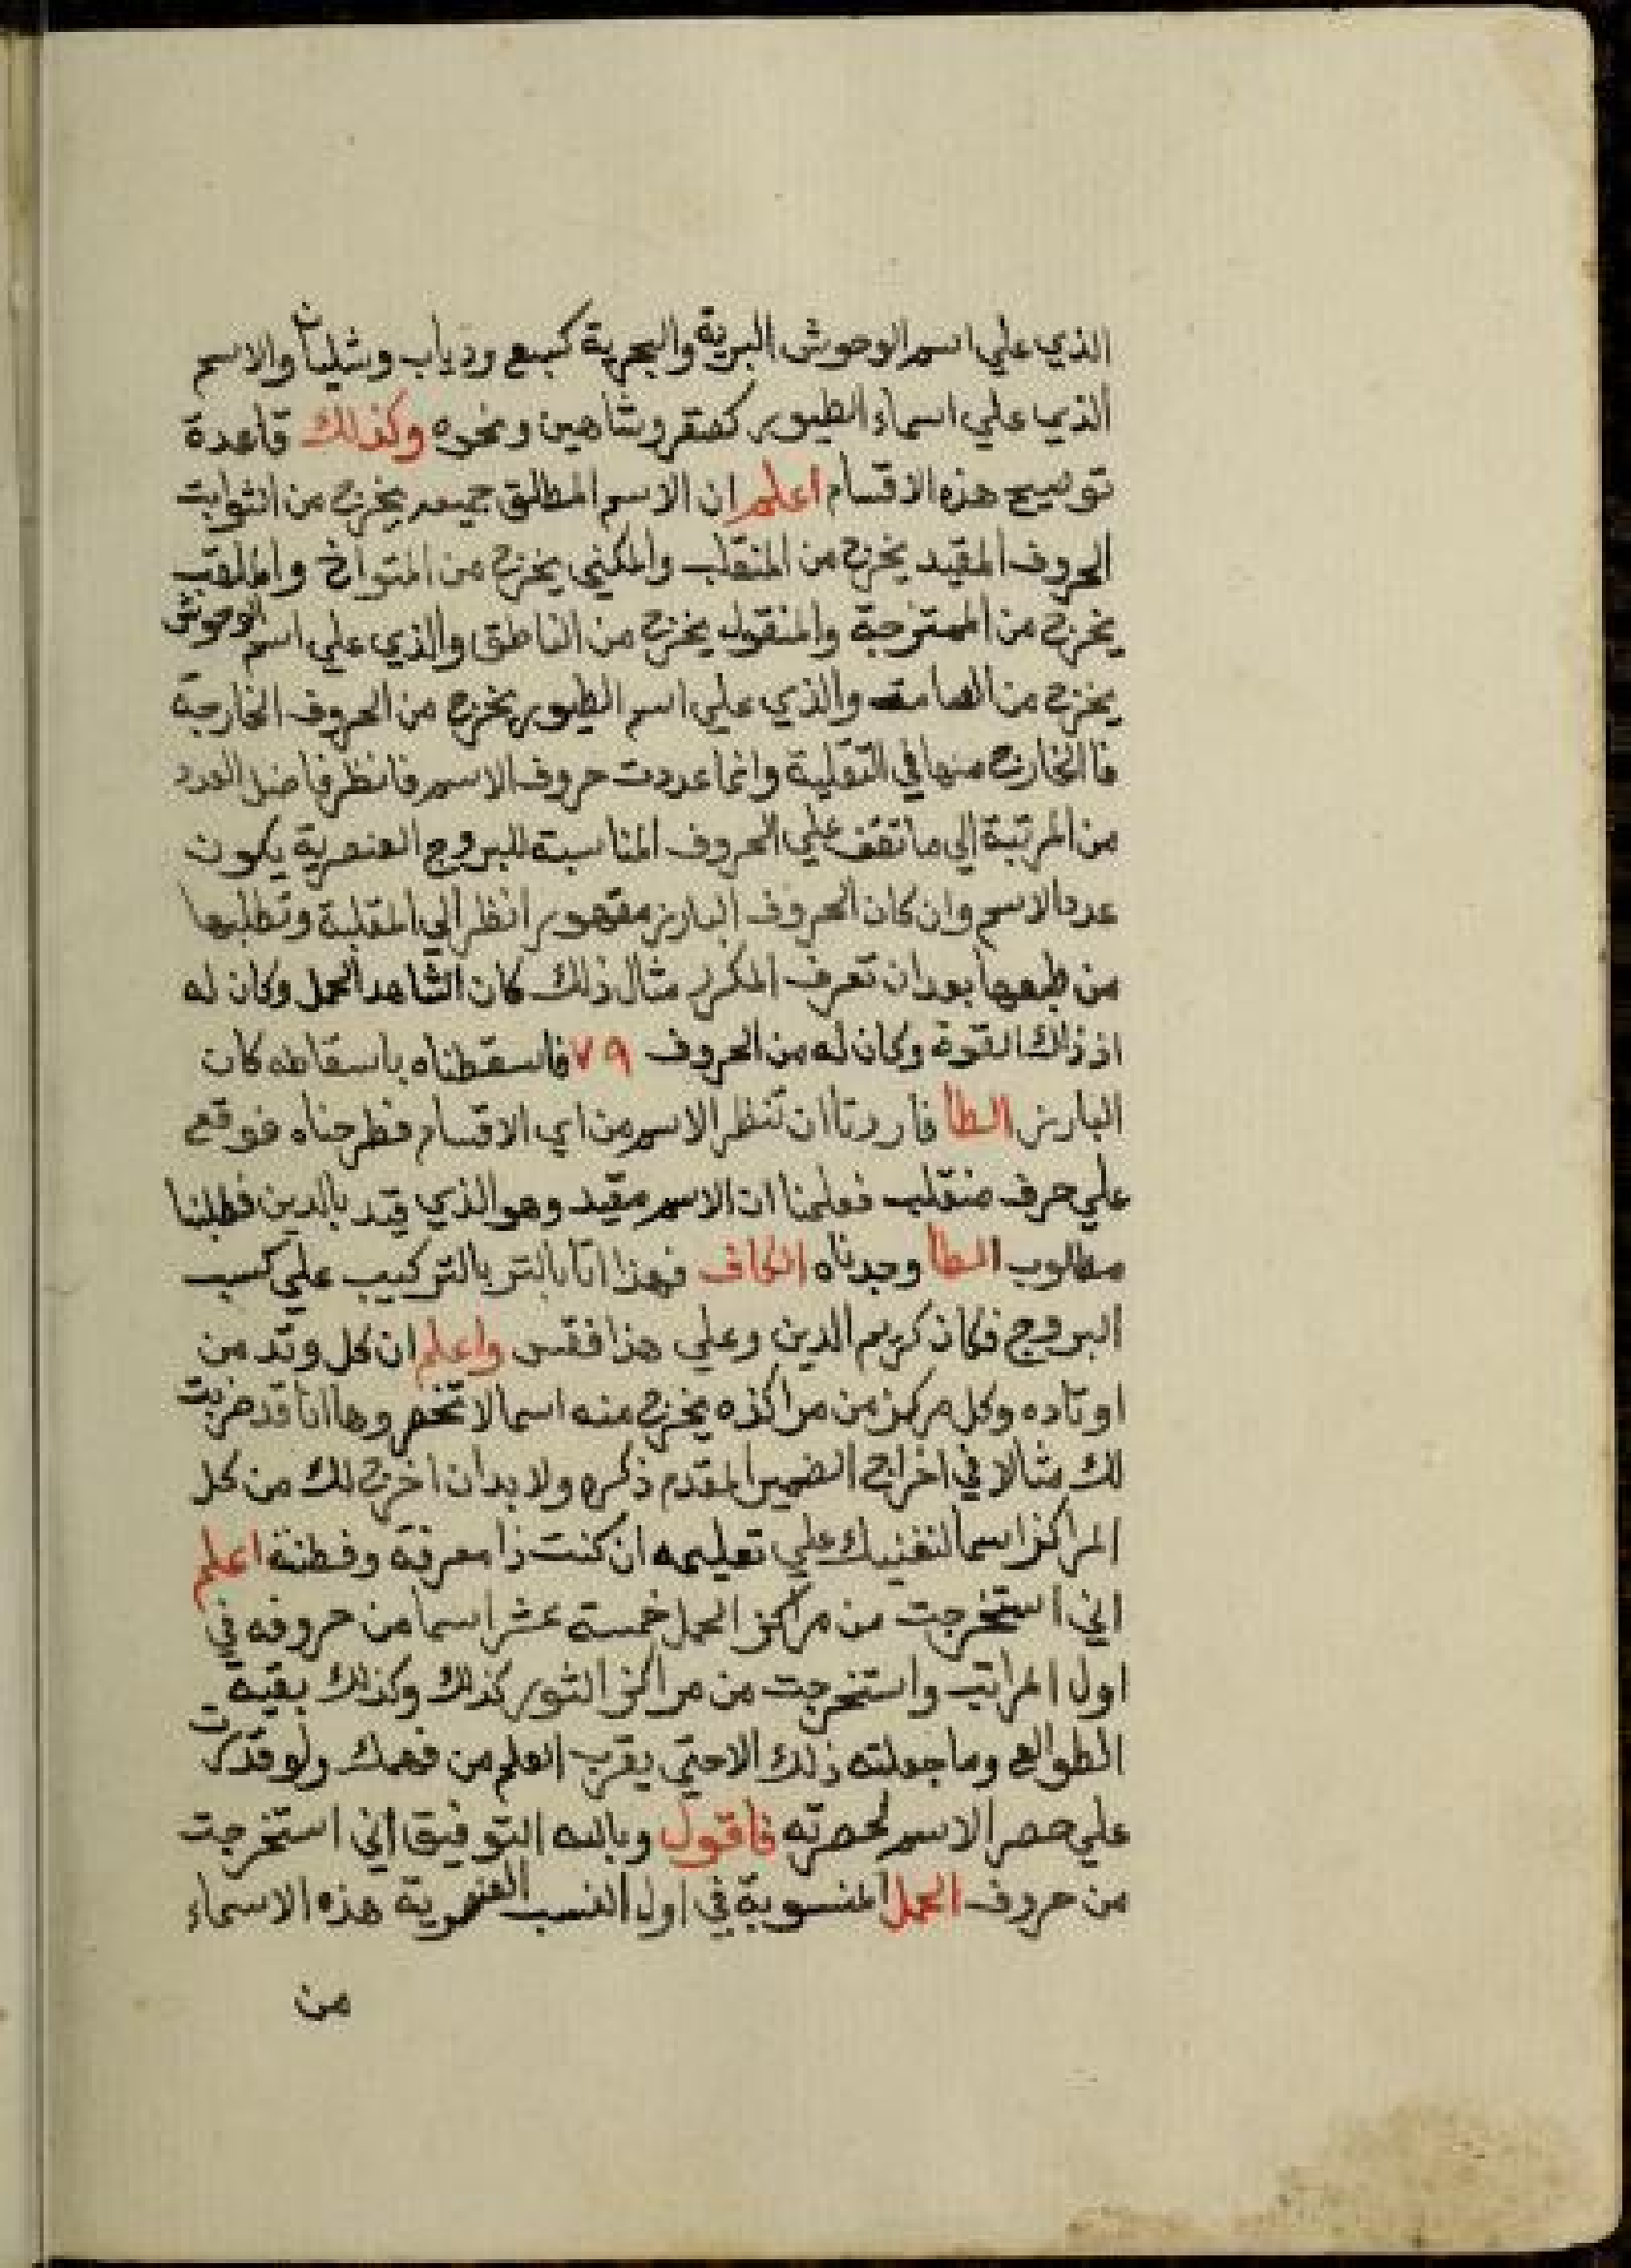 الذي علي اسم الوحوش البرية والبحرية كسبع ودياب وشليان والاسم
الذي علي اسماء الطيور كصقر وشاهين ونحوه وكذلك قاعدة
توضيح هذه الاقسام اعلم ان الاسم المطلق جميعه يخرج من الثوابت
الحروف المقيد يخرج من المنقلب والمكني يخرج من المتواخ والملقب
يخرج من الممتزجة والمنقول يخرج من الناطق والذي علي اسم الوحوش
يخرج من الصامت والذي علي اسم الطيور يخرج من الحروف الخارجة
فا الخارج منها في التقلية وانما عددت حروف الاسم فانظر فاضل العدد
من المرتبة الي ما تقف علي الحروف المناسبة للبروج العنصرية يكون
عدد الاسم وان كان الحروف البارز مقهور انظر الي المقلبة وتطلبها
من طبعها بعد ان تعرف المكرر مثال ذلك كان الشاهد الحمل وكان له
اذ ذلك القوة وكان له من الحروف ٧٩ فاسقطناه باسقاطه كان
البارز الطا فاردنا ان ننظر الاسم من اي الاقسام فطرحناه فوقع
علي حرف منقلب فعلمنا ان الاسم مقيد وهو الذي قيد بالدين فطلبنا
مطلوب الطا وجدناه الكاف فهذا اتا بالتر بالتركيب علي كسب
البروج فكان كريم الدين وعلي هذا فقس واعلم ان كل وتد من
اوتاده وكل مركز من مراكزه يخرج منه اسما لا تحصر وها انا قد ضربت
لك مثالا في اخراج الضمير المقدم ذكره ولا بد ان اخرج لك من كل
المراكز اسما لنفنيك علي تعليمه ان كنت ذا معرفة وفطنة اعلم
اني استخرجت من مراكز الحمل خمسة عشر اسما من حروفه في
اول المراتب واستخرجت من مراكز الثور كذلك وكذلك بقية
الطوالع وما جعلته ذلك الا حتي يقرب العلم من فهمك ولو قدرت
علي حصر الاسم لحصرته فاقول وبالله التوفيق اني استخرجت
من حروف الحمل المنسوبة في اول النسب العنصرية هذه الاسماء
من